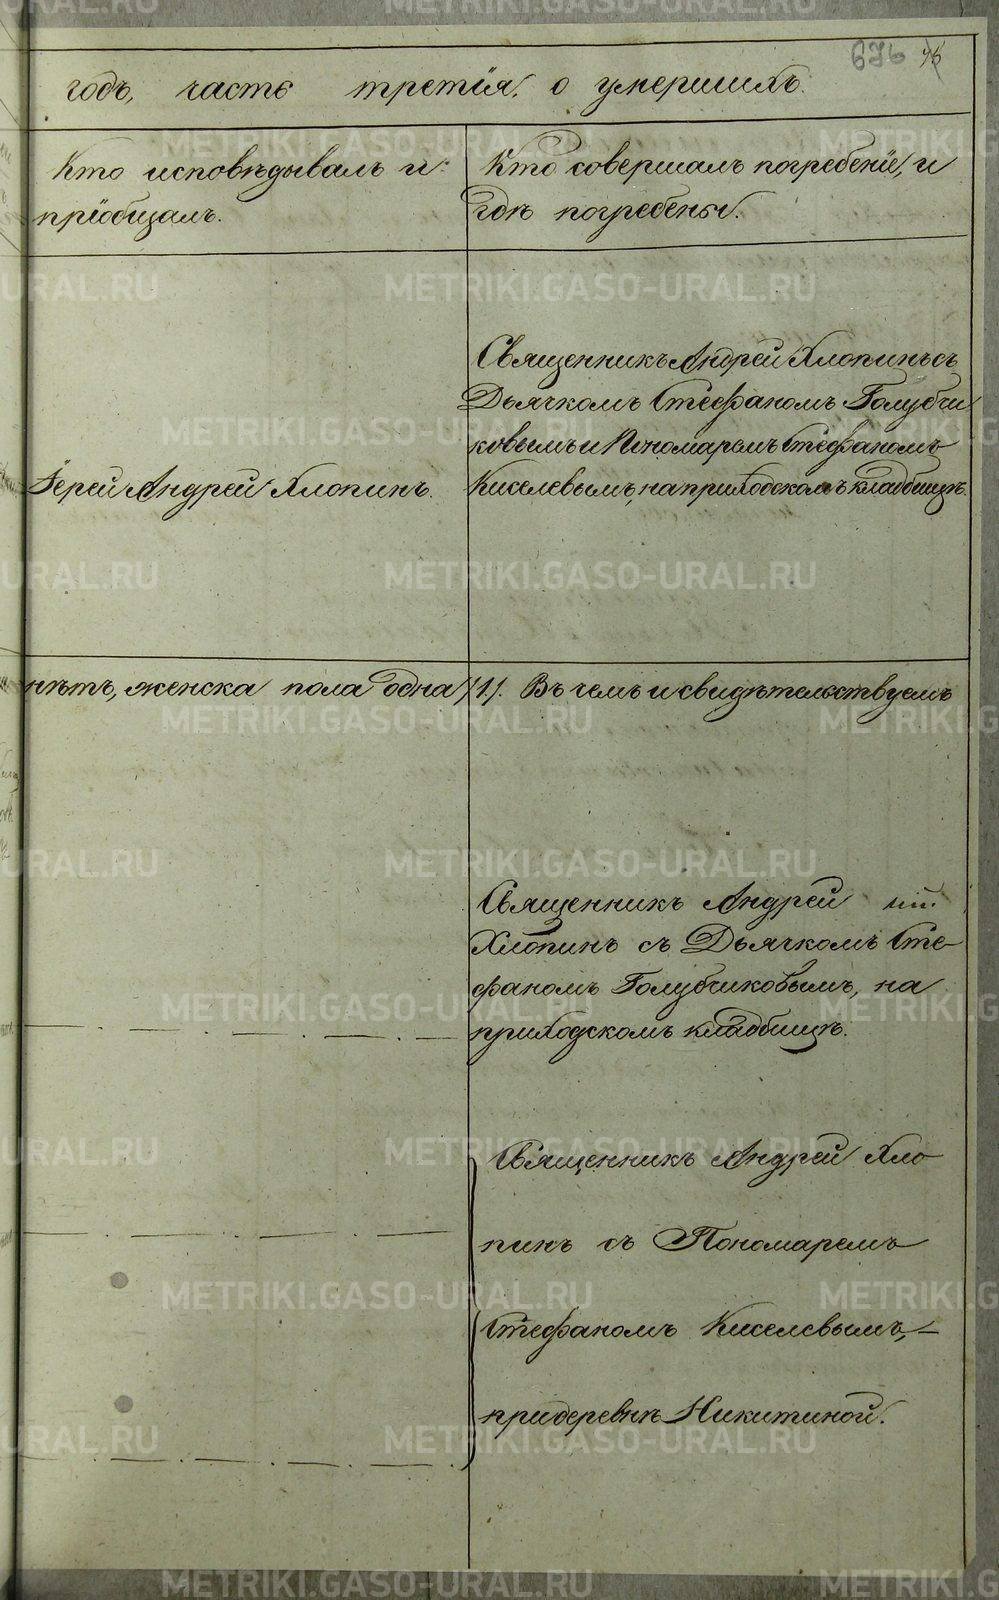 676 76
годъ, часть третія, о умершихъ.
Кто исповѣдывалъ и
пріобщалъ.
Кто совершалъ погребеніе, и
гдѣ погребены.
Іерей Андрей Хлопинъ.
Священникъ Андрей Хлопинъ съ
Дьячкомъ Стефаномъ Голубчи
ковымъ и Пономаремъ Стефаномъ
Киселевымъ, на приходскомъ кладбищѣ.
нѣтъ, женска пола одна /1/. Въ чемъ и свидѣтельствуемъ
Священникъ Андрей
Хлопинъ съ Дьячкомъ Сте-
фаномъ Голубчиковымъ, на
приходскомъ кладбищѣ.
Священникъ Андрей Хло
пинъ съ Пономаремъ
Стефаномъ Киселевымъ, –
при деревнѣ Никитиной.
METRIKI.GASO-URAL.RU